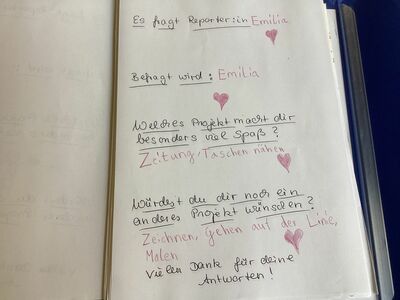 Es fragt Reporter:in Emilia
Befragt wird: Emilia
Welches Projekt macht dir
besonders viel Spaß?
Zeitung, Taschen nähen
Würdest du dir noch ein
anderes Projekt wünschen?
Zeichnen, Gehen auf der Linie,
Malen
Vielen Dank für deine
Antworten!